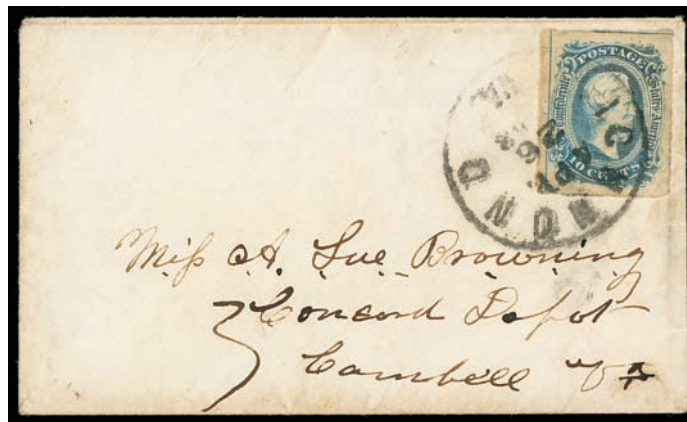 POSTAGE
Confederate States America
10 CENTS
RICHMOND VA.
Miss A. Sue Browning
Concord Depot
Cambell Va